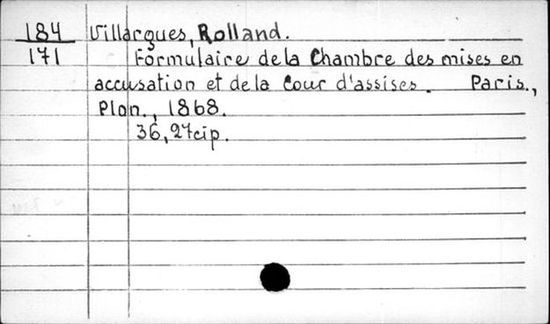 184 Villargues, Rolland.
171 Formulaire de la Chambre des mises en
accusation et de la Cour d'assises. Paris.,
Plon., 1868.
36, 27cip.